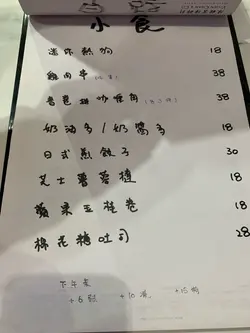 小食
迷你熱狗 18
雞肉串 38
春卷拼咖喱角 38
奶油多/奶醬多 18
日式煎餃子 30
芝士薯蓉檜 18
蘋果玉桂卷 18
棉花糖吐司 28
下午茶
+6 +10凍 +15